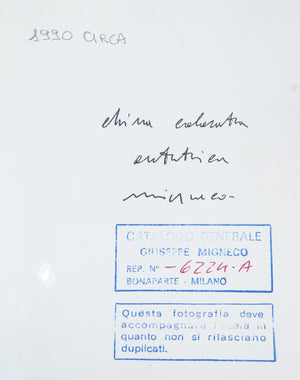 1990 CIRCA
china colorata
autentica
migneco-
CATALOGO GENERALE
GIUSEPPE MIGNECO
REP. N° -6224-A
BONAPARTE - MILANO
Questa fotografia deve
accompagnare l'opera in
quanto non si rilasciano
duplicati.